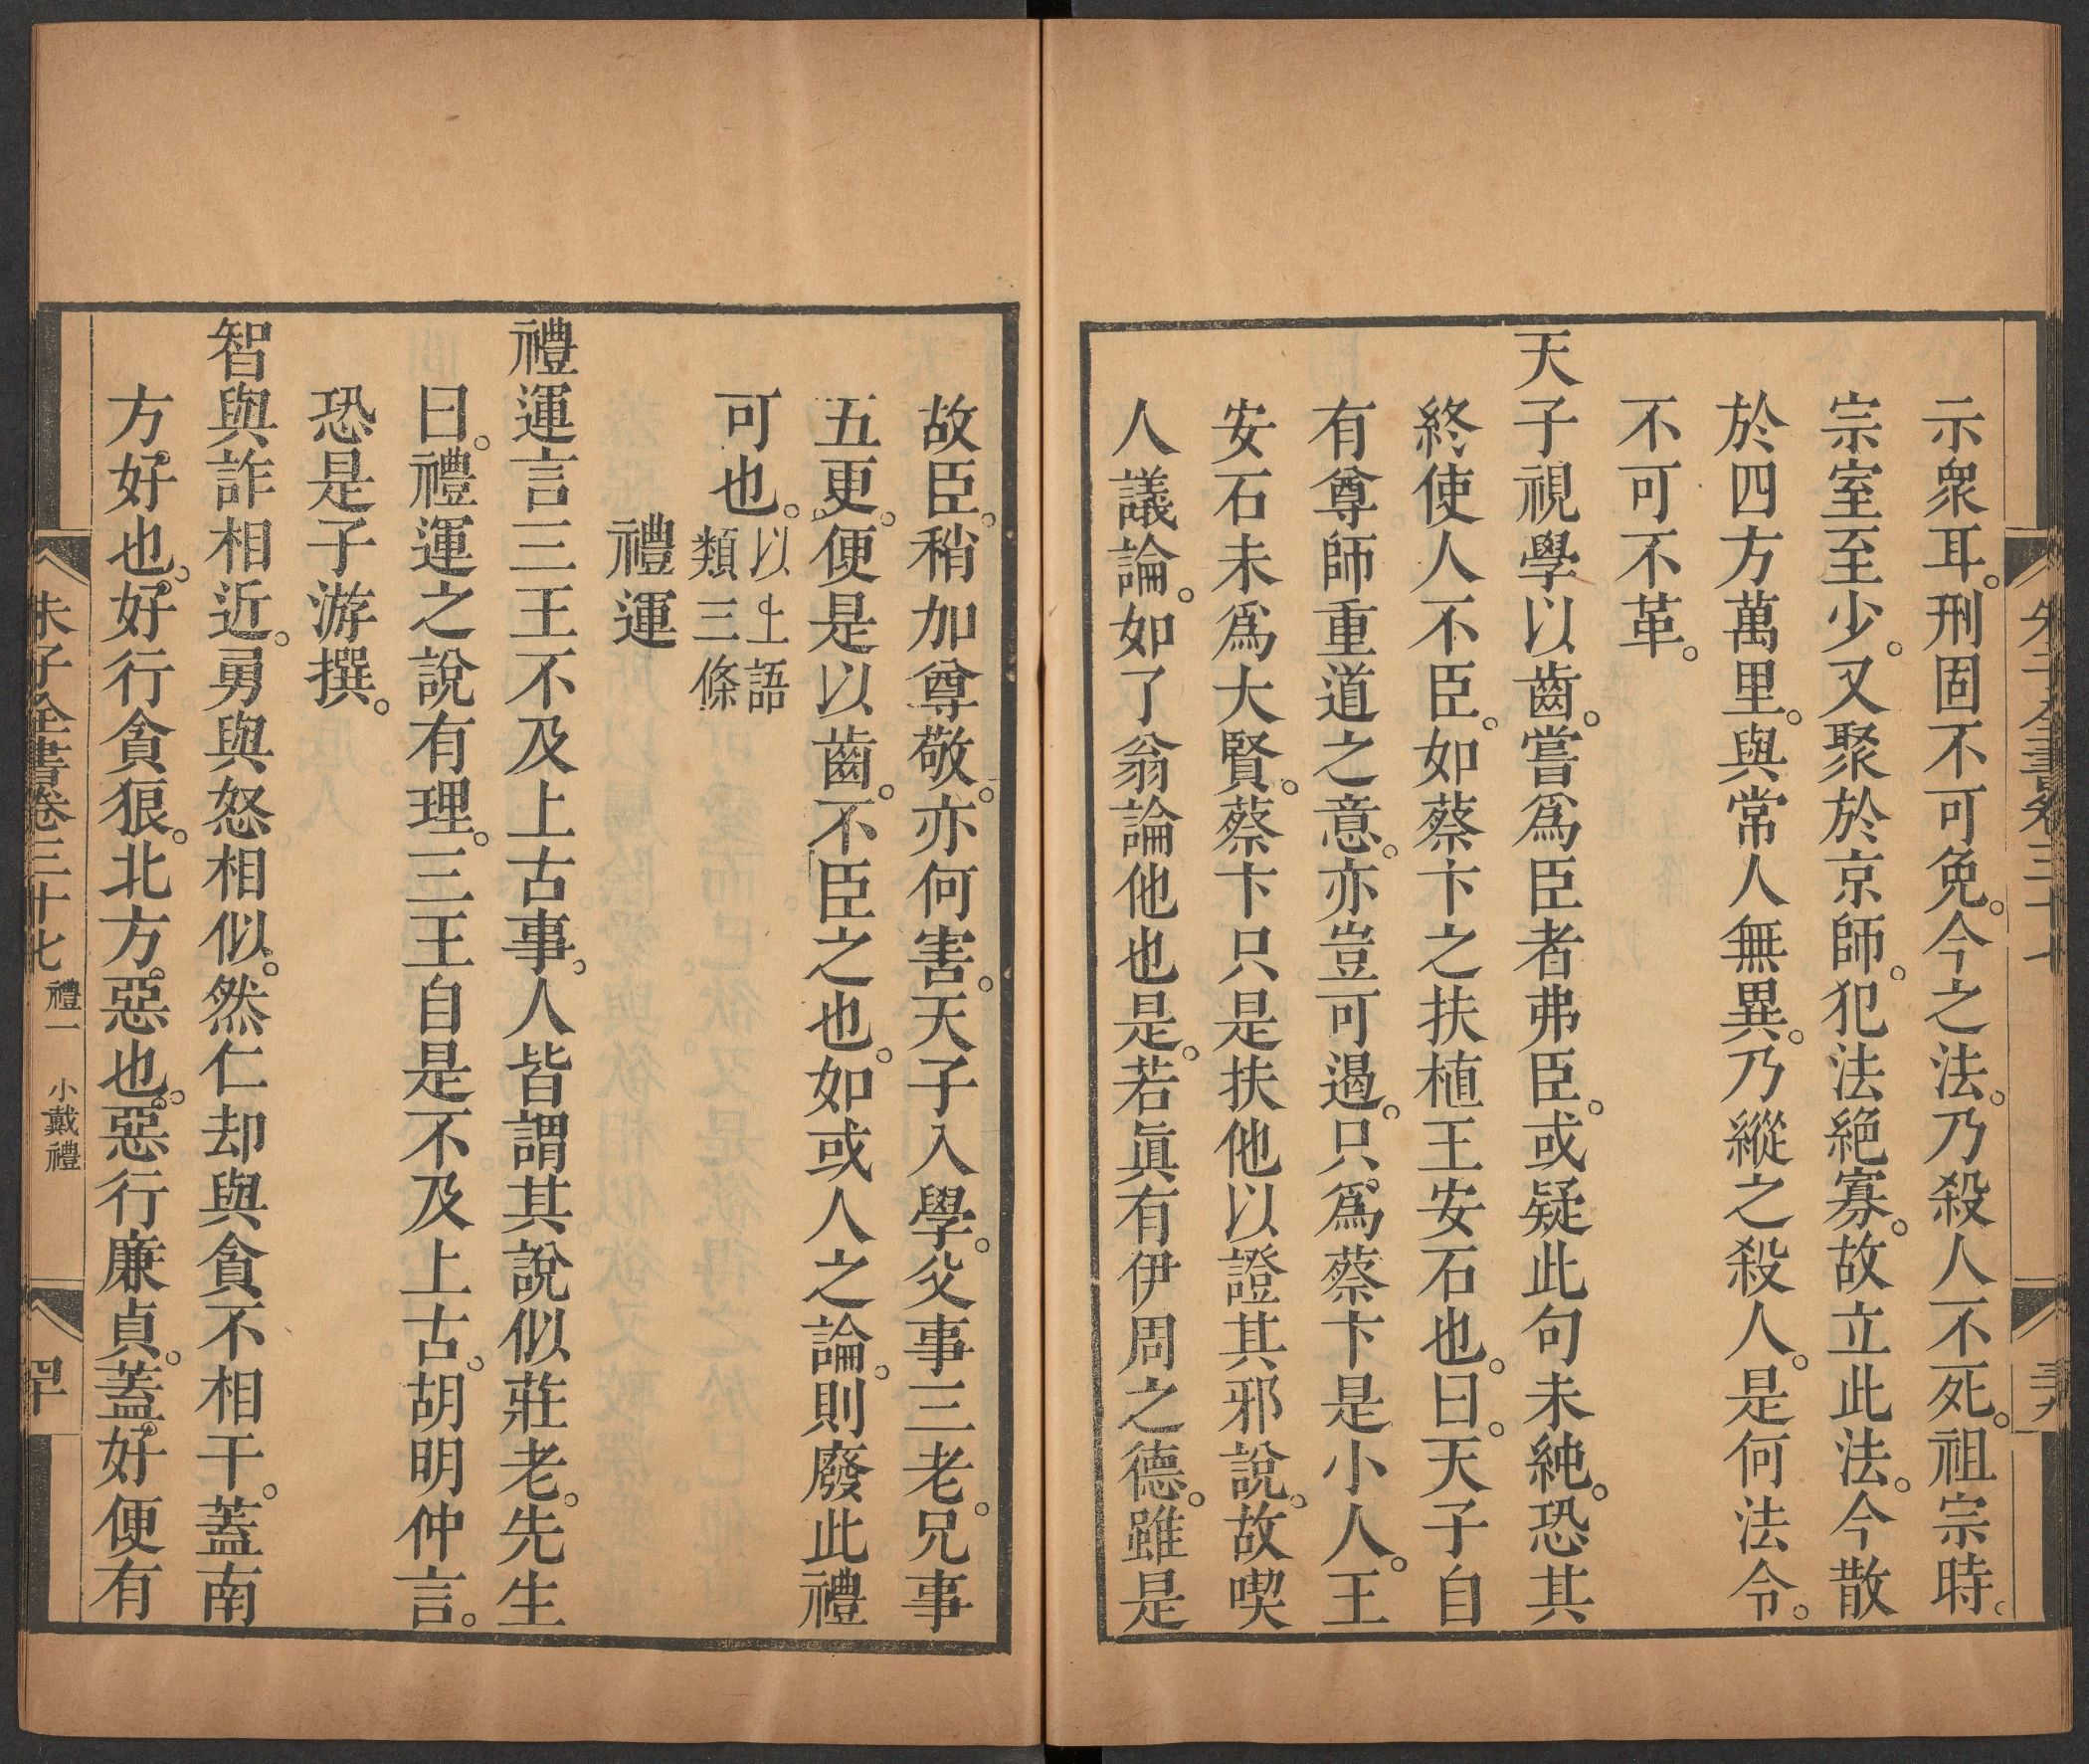 示衆耳。刑固不可免。今之法。乃殺人不死。祖宗時。
宗室至少。又聚於京師。犯法絕寡。故立此法。今散
於四方萬里。與常人無異。乃縱之殺人。是何法令。
不可不革。
天子視學以齒。嘗爲臣者弗臣。或疑此句未純。恐其
終使人不臣。如蔡卞之扶植王安石也。曰。天子自
有尊師重道之意。亦豈可遏。只爲蔡卞是小人。王
安石未爲大賢。蔡卞只是扶他以證其邪說。故喫
人議論。如了翁論他也是。若眞有伊周之德。雖是
故臣。稍加尊敬。亦何害。天子入學。父事三老。兄事
五更。便是以齒。不臣之也。如或人之論。則廢此禮
可也。以上語
類三條
禮運
禮運言三王不及上古事。人皆謂其說似莊老。先生
曰。禮運之說有理。三王自是不及上古。胡明仲言。
恐是子游撰。
智與詐相近。勇與怒相似。然仁却與貪不相干。蓋南
方。好也。好行貪狠。北方。惡也。惡行廉貞。蓋。好便有
朱子全書卷三十七 禮一 小戴禮